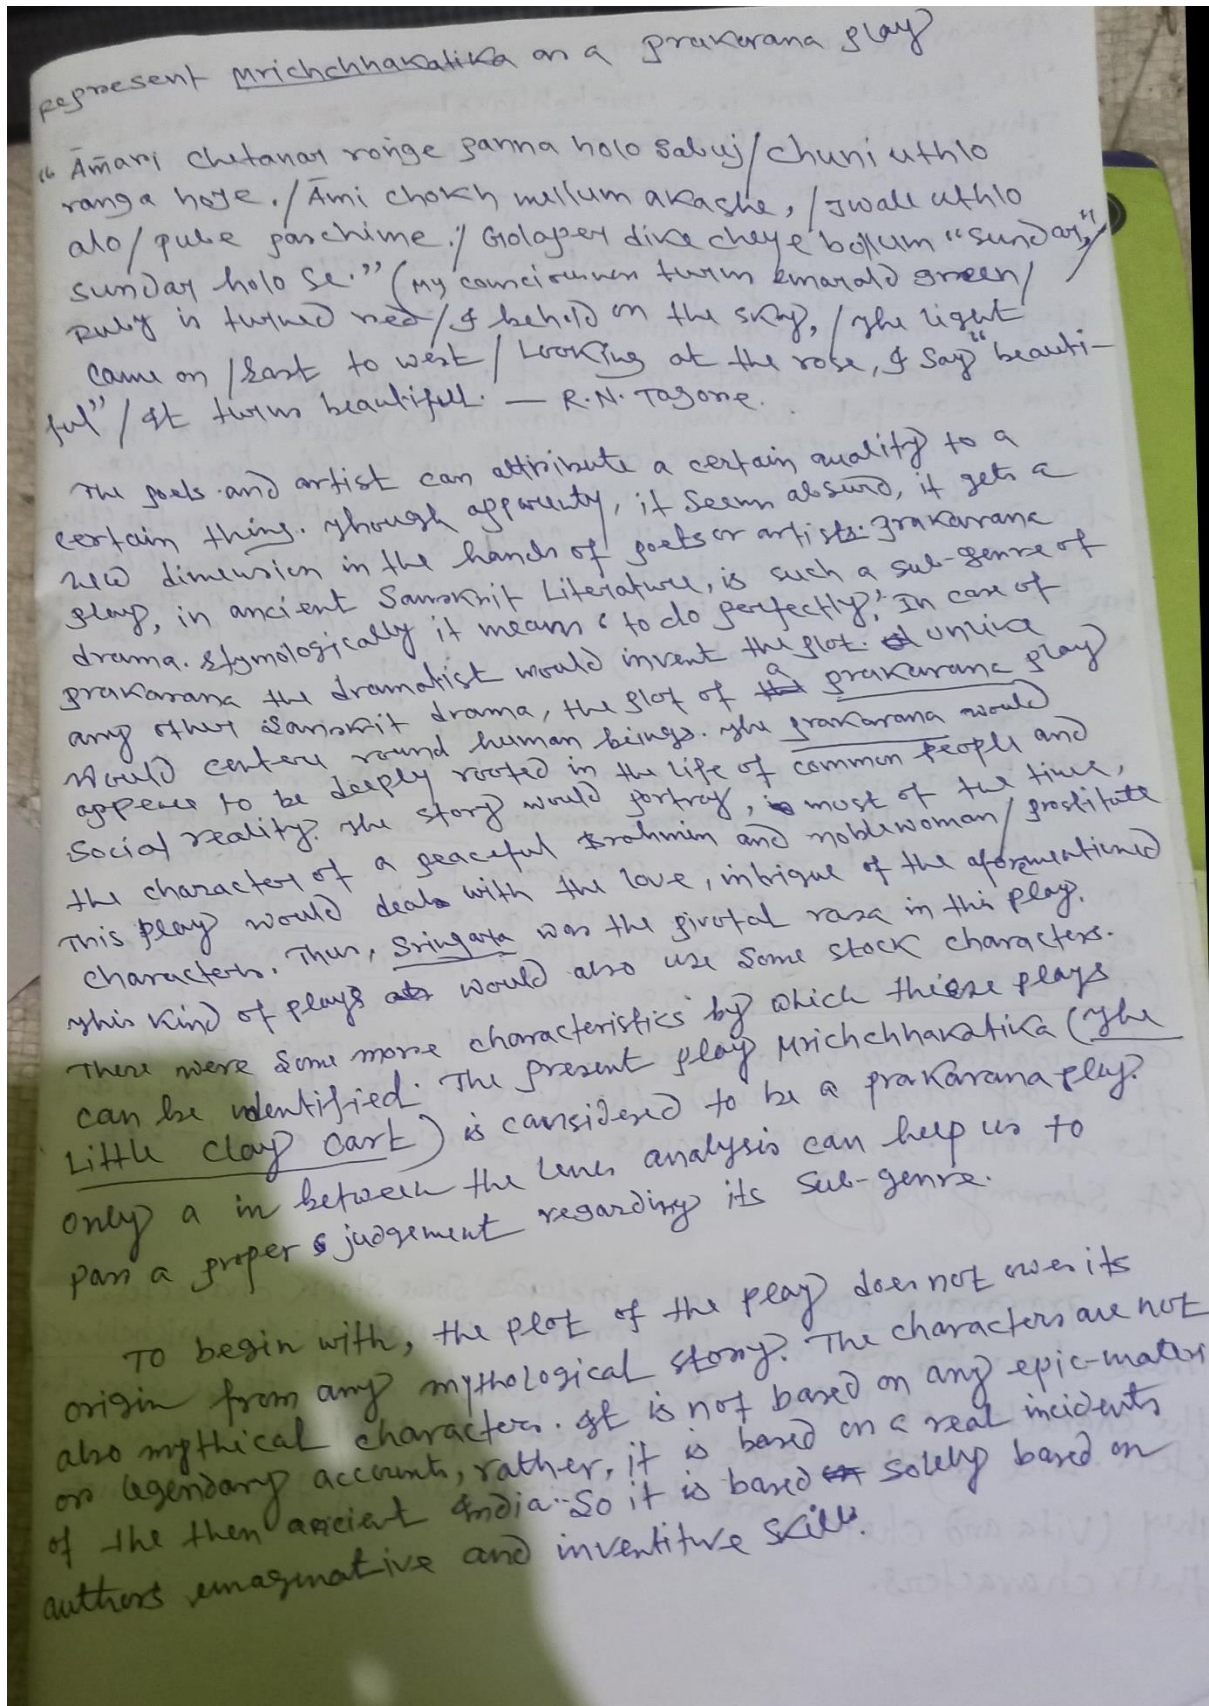 represent Mrichchhakatika as a prakarana play
"Āmari Chetanar ronge panna holo Sabuj/chuni uthlo
ranga hoye./Āmi chokh mellum akashe,/Jwale uthlo
alo/pube paschime./Golaper dike cheye bollum "sundar,"/
sundar holo se." (My consciousness turns emarald green/
Ruby is turned red/I behold on the sky,/The light
came on/East to west/Looking at the rose, I say "beauti-
ful"/It turns beautiful. — R.N. Tagore.
The poets and artist can attribute a certain quality to a
certain thing. Though apparently, it seems absurd, it gets a
new dimension in the hands of poets or artists. Prakarana
play, in ancient Sanskrit Literature, is such a sub-genre of
drama. Etymologically it means 'to do perfectly'. In case of
prakarana the dramatist would invent the plot. unlike
any other Sanskrit drama, the plot of a prakarana play
would centere round human beings. The prakarana would
appear to be deeply rooted in the life of common people and
social reality. The story would portray, most of the time,
the character of a peaceful Brahmin and noblewoman/prostitute
This play would deal with the love, intrigue of the aforementioned
characters. Thus, Sringara was the pivotal rasa in this play.
This kind of plays would also use some stock characters.
There were some more characteristics by which these plays
can be identified. The present play Mrichchhakatika (The
Little Clay Cart) is considered to be a prakarana play.
only a in between the lines analysis can help us to
pass a proper judgement regarding its sub-genre.
To begin with, the plot of the play does not owes its
origin from any mythological story. The characters are not
also mythical characters. It is not based on any epic-matters
or legendary accounts, rather, it is based on a real incidents
of the then ancient India. So it is based solely based on
authors imaginative and inventive skills.